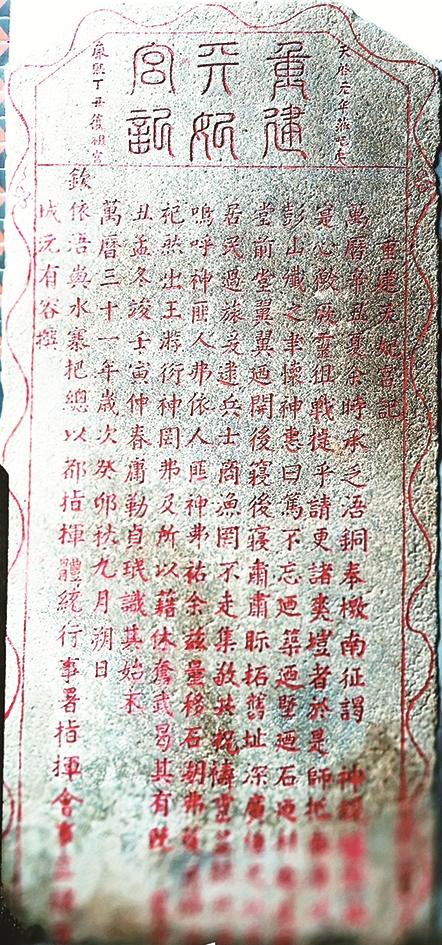 重建
天妃
宮記
天啟元年
康熙丁丑復祖宮
重建天妃宮記
萬曆辛丑夏余時承乏浯銅奉檄南征謁 神
寔心儆厥靈徂戰捷乎請更諸爽塏者於是師抵
彭山殲之聿懷神惠曰篤不忘迺築迺墅迺石迺
堂前堂翼翼迺開後寢後寢肅肅眎拓舊址深廣
居民過旅妥逮兵士商漁罔不走集敬共祝禱靈益
嗚呼神匪人弗依人匪神弗祐余茲量移石胡弗
祀然出王游衍神罔弗及所以藉休奮武曷其有既
丑孟冬竣壬寅仲春庸勒貞珉識其始末
萬曆三十一年歲次癸卯秋九月朔日
欽依浯嶼水寨把總以都指揮體統行事署指揮僉事
城元有容撰